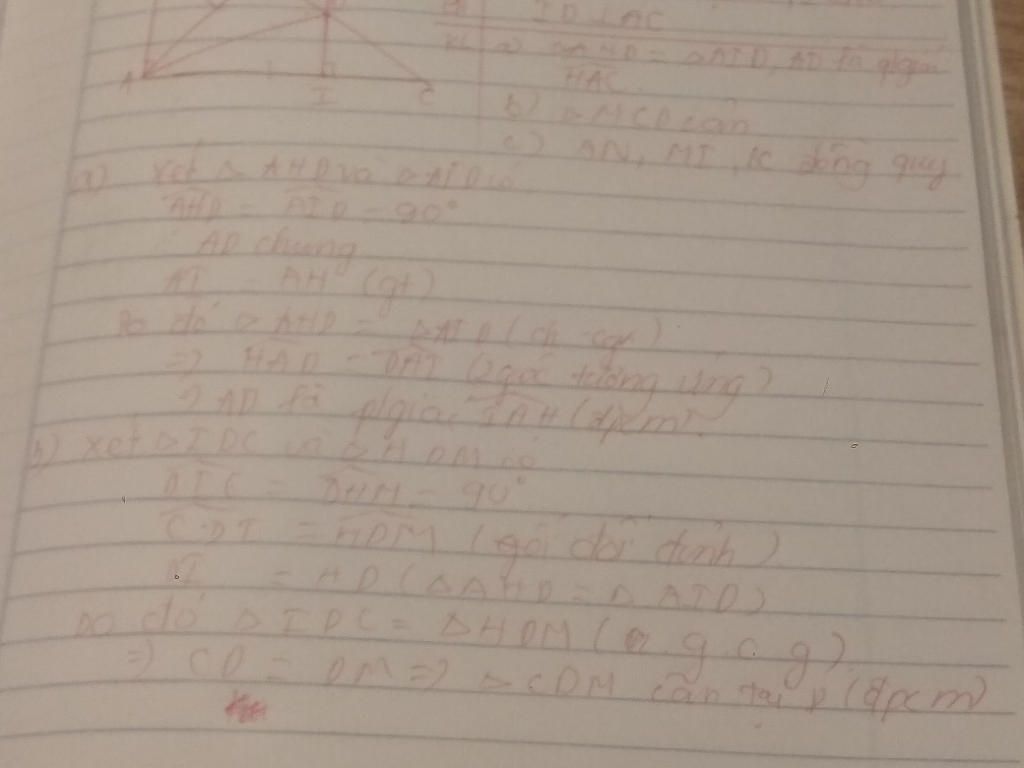 ID ⊥ AC
KL a) △AHD = △AID, AD là p/giác
HAC
A I C
b) △MCD cân
c) AN, MI, KC đồng quy
a) Xét △AHD và △AID có
AHD = AID = 90°
AD chung
AI = AH (gt)
Do đó △AHD = △AID (ch - cgv)
=> HAD = DAI (2 góc tương ứng)
=> AD là p/giác IAH (đpcm).
b) Xét △IDC và △HDM có
DIC = DHM = 90°
CDI = HDM (góc đối đỉnh)
DI = HD (△AHD = △AID)
Do đó △IDC = △HDM (g.c.g)
=> CD = DM => △CDM cân tại D (đpcm)